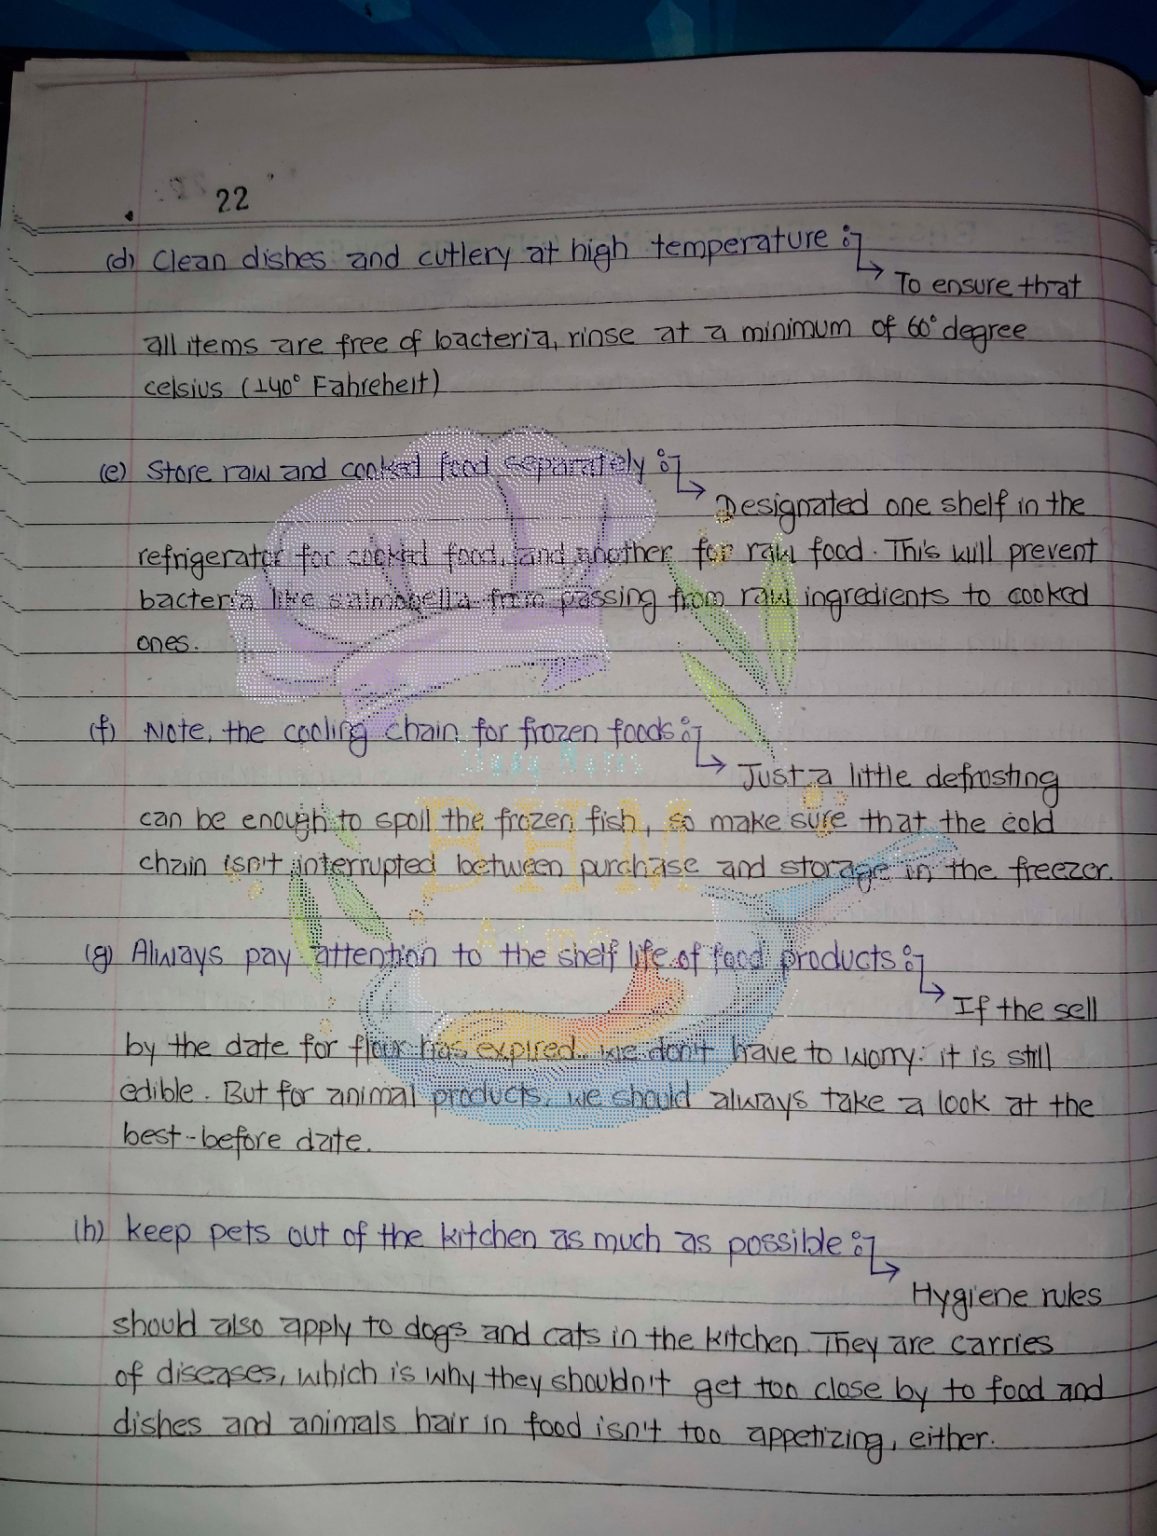 22
(d) Clean dishes and cutlery at high temperature :
To ensure that
all items are free of bacteria, rinse at a minimum of 60° degree
celsius (140° Fahreheit)
(e) Store raw and cooked food separately :
Designated one shelf in the
refrigerator for cooked food, and another for raw food. This will prevent
bacteria like salmonella from passing from raw ingredients to cooked
ones.
(f) Note, the cooling chain for frozen foods :
Just a little defrosting
can be enough to spoil the frozen fish, so make sure that the cold
chain isn't interrupted between purchase and storage in the freezer.
BHM
(g) Always pay attention to the shelf life of food products :
If the sell
by the date for flour has expired.. we don't have to worry: it is still
edible. But for animal products, we should always take a look at the
best-before date.
(h) keep pets out of the kitchen as much as possible :
Hygiene rules
should also apply to dogs and cats in the kitchen. They are carries
of diseases, which is why they shouldn't get too close by to food and
dishes and animals hair in food isn't too appetizing, either.